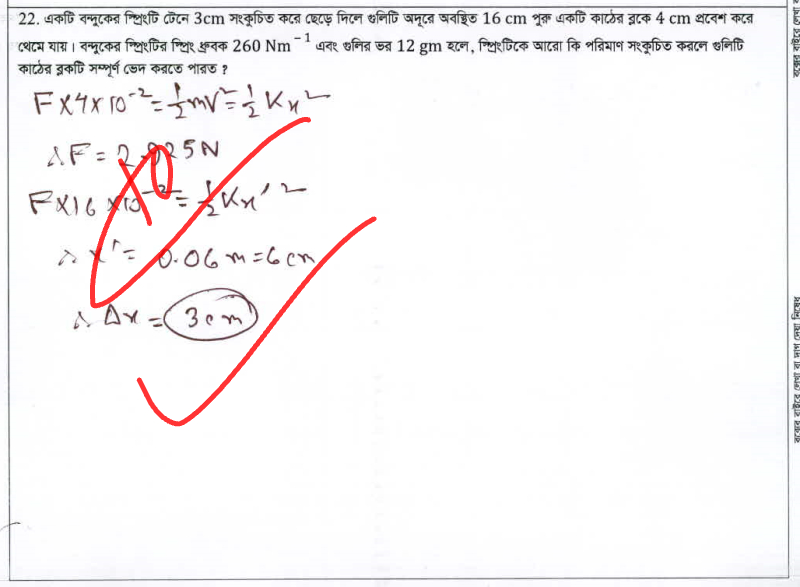 22. একটি বন্দুকের স্প্রিংটি টেনে 3cm সংকুচিত করে ছেড়ে দিলে গুলিটি অদূরে অবস্থিত 16 cm পুরু একটি কাঠের ব্লকে 4 cm প্রবেশ করে
থেমে যায়। বন্দুকের স্প্রিংটির স্প্রিং ধ্রুবক 260 Nm⁻¹ এবং গুলির ভর 12 gm হলে, স্প্রিংটিকে আরো কি পরিমাণ সংকুচিত করলে গুলিটি
কাঠের ব্লকটি সম্পূর্ণ ভেদ করতে পারত ?
F×4×10⁻² = ½mv² = ½Kx²
∴ F = 2.925N
F×16×10⁻² = ½Kx'²
∴ x' = 0.06m = 6cm
∴ Δx = 3cm
10
বক্সের বাইরে লেখা বা দাগ দেয়া নিষেধ